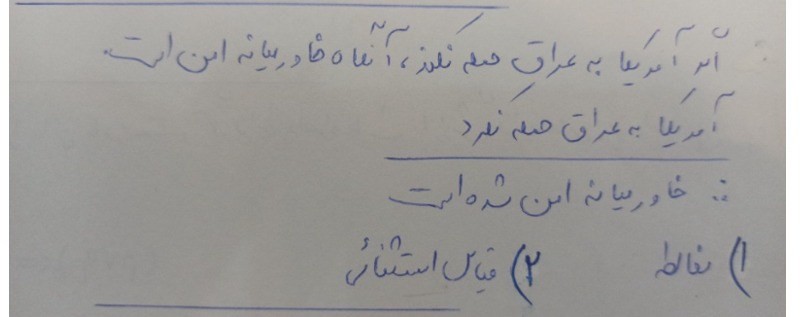 اگر آمریکا به عراق حمله نکند، آنگاه خاورمیانه امن است.
آمریکا به عراق حمله نکرد
∴ خاورمیانه امن شده است
۱) مغالطه ۲) قیاس استثنائی